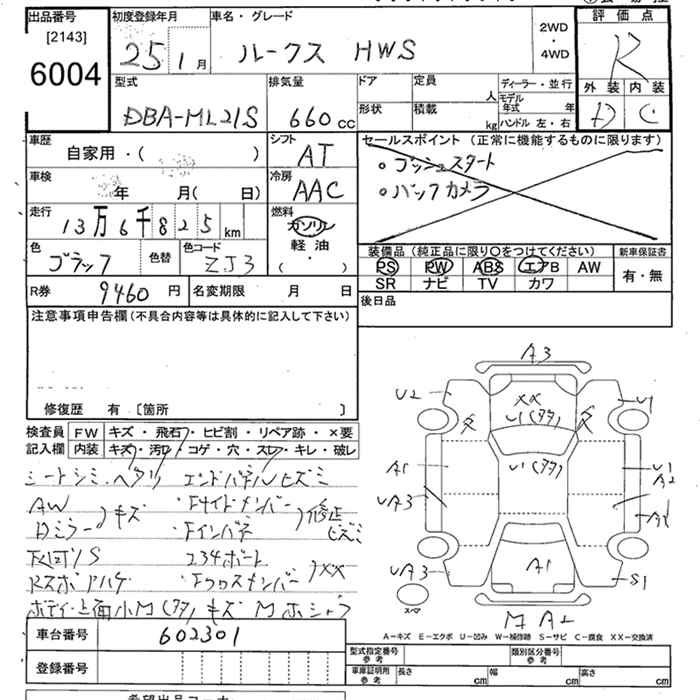 出品番号
[2143]
6004
初度登録年月
25 1月
車名・グレード
ルークス HWS
2WD
・
4WD
評価点
R
外装 内装
D C
型式
DBA-ML21S
排気量
660cc
ドア 定員 人
形状 積載 kg
ディーラー・並行
モデル年式 年
ハンドル 左・右
車歴
自家用・( )
シフト
AT
セールスポイント(正常に機能するものに限ります)
・プッシュスタート
・バックカメラ
車検
年 月( 日)
冷房
AAC
走行
13万6千825km
燃料
ガソリン
軽油
( ・ )
色
ブラック
色替
色コード
ZJ3
装備品(純正品に限り○をつけてください)
PS PW ABS エアB AW
SR ナビ TV カワ
新車保証書
有・無
R券 9460円
名変期限 月 日
後日品
注意事項申告欄(不具合内容等は具体的に記入して下さい)
修復歴 有 〔箇所 〕
検査員記入欄
FW キズ・飛石・ヒビ割・リペア跡・×要
内装 キズ・汚れ・コゲ・穴・スレ・キレ・破レ
シートシミ・ヘタリ エンドパネルヒズミ
AW
Dミラー キズ
・Fサイドメンバー
・Fインパネ
修正
ヒズミ
234ボート
・Fクロスメンバー
XX
ボディ上面小M(タタ)キズ
A3
U2
XX
U1(タタ)
U1
U1(タタ)
A1
UA3
U1
A2
A1
UA3
A1
S1
スマ
M A2
A-キズ E-エクボ U-凹み W-補修跡 S-サビ C-腐食 XX-交換済
車台番号
602301
登録番号
型式指定番号
参考
類別区分番号
参考
車庫証明用
参考
長さ cm 幅 cm 高さ cm